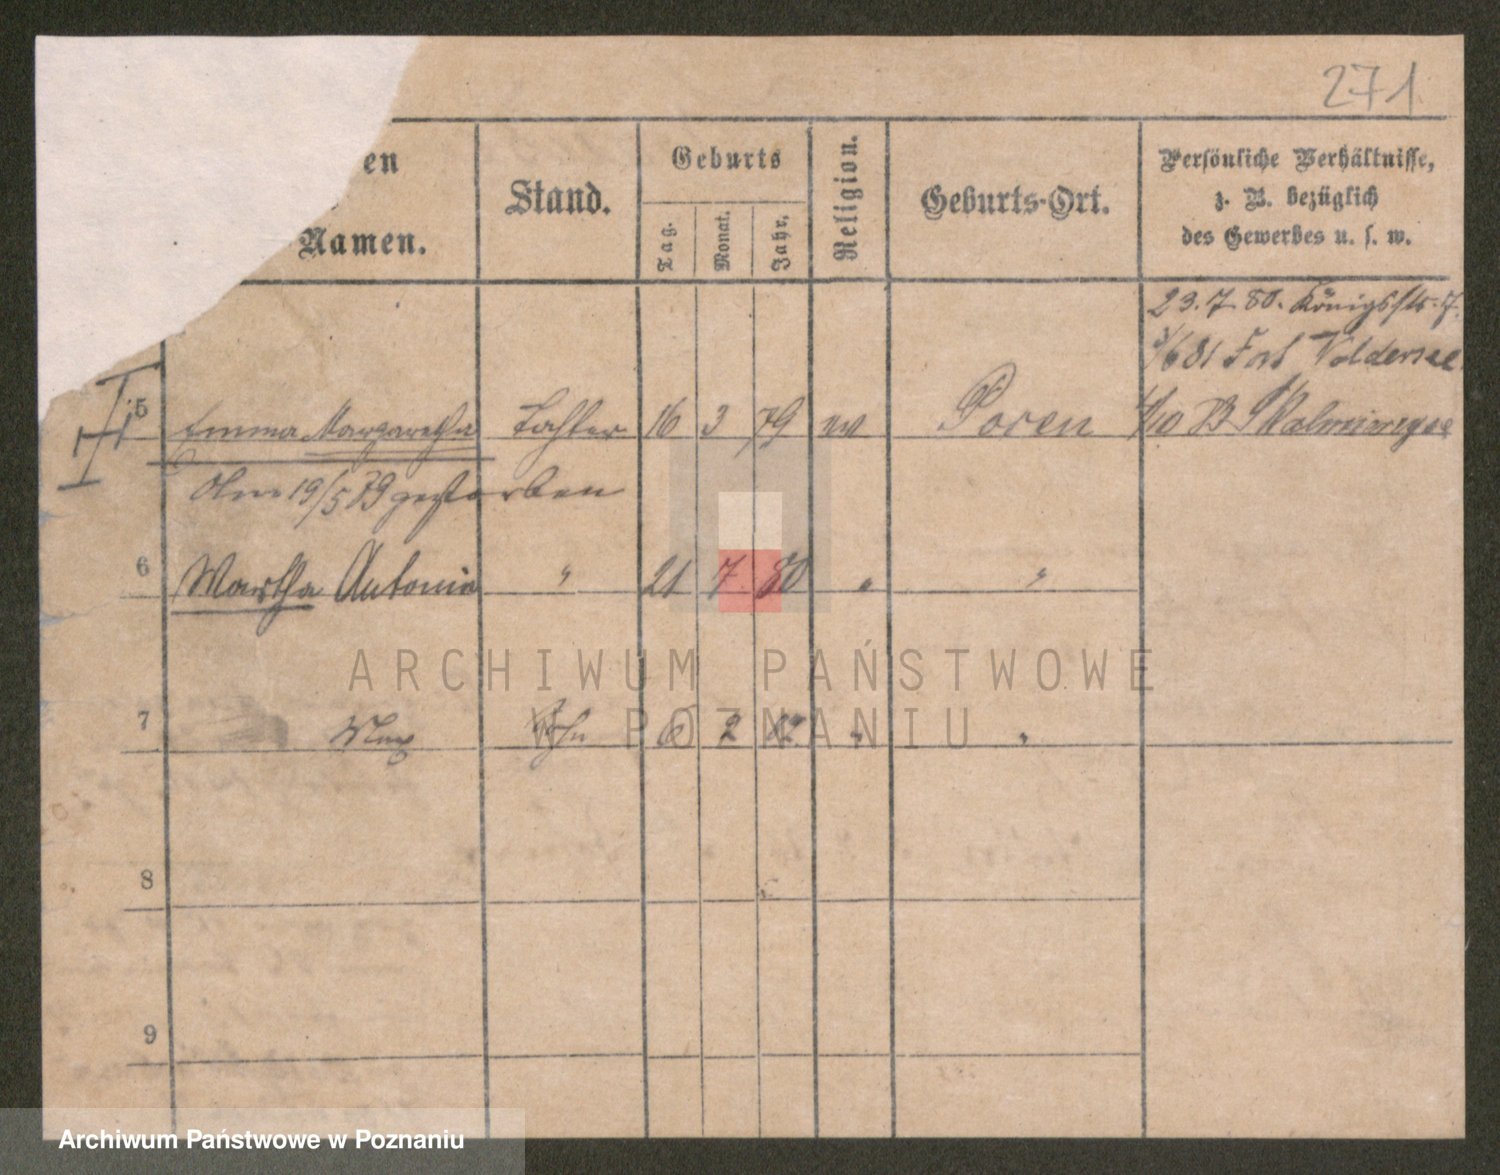 271
en
Namen.
Stand.
Geburts
Tag.
Monat.
Jahr.
Religion.
Geburts-Ort.
Persönliche Verhältnisse,
z. B. bezüglich
des Gewerbes u. s. w.
23. 7. 80. Königsstr. 7.
3/6 81 Fort
5 Emma Margaretha Tochter 16 3 79 ev Posen
19/5 79 gestorben
6 Martha Antonie " 21 7 80 " "
7 Max Sohn 6 2 82 " "
8
9
ARCHIWUM PAŃSTWOWE
W POZNANIU
Archiwum Państwowe w Poznaniu